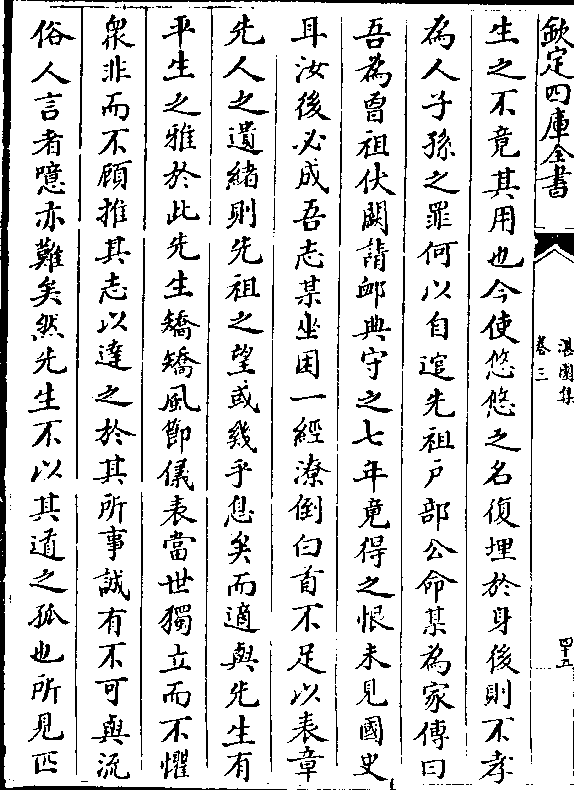 欽定四庫全書
湛園集
卷三
四十五
生之不竟其用也今使悠悠之名復埋於身後則不孝
為人子孫之罪何以自逭先祖戸部公命某為家傳曰
吾為曽祖伏闕請䘏典守之七年竟得之恨未見國史
耳汝後必成吾志某坐困一經潦倒白首不足以表章
先人之遺緒則先祖之望或幾乎息矣而適與先生有
平生之雅於此先生矯矯風節儀表當世獨立而不懼
衆非而不顧推其志以達之於其所事誠有不可與流
俗人言者噫亦難矣然先生不以其道之孤也所見匹